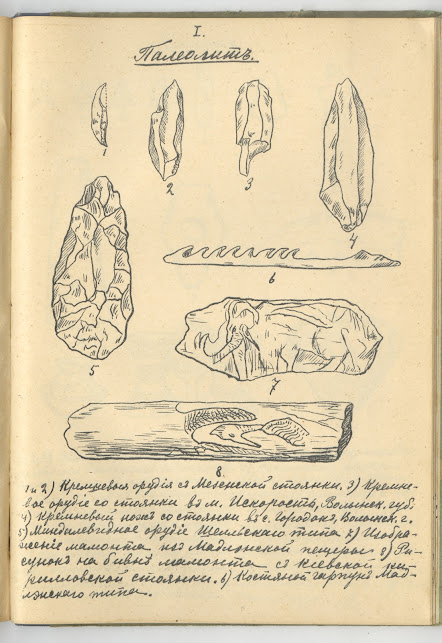 I.
Палеолитъ.
1
2
3
4
5
6
7
8.
1 и 2) Кремневыя орудія съ Мезенской стоянки. 3) Кремне-
вое орудіе со стоянки въ м. Искорость, Волынск. губ.
4) Кремневый ножъ со стоянки въ с. Городокъ, Волынск. г.
5) Миндалевидное орудіе Шелльскаго типа 7) Изобра-
женіе мамонта изъ Мадленской пещеры 8) Ри-
сунокъ на бивнѣ мамонта съ Кіевской Ки-
рилловской стоянки. 6) Костяной гарпунъ Мад-
лэнскаго типа.